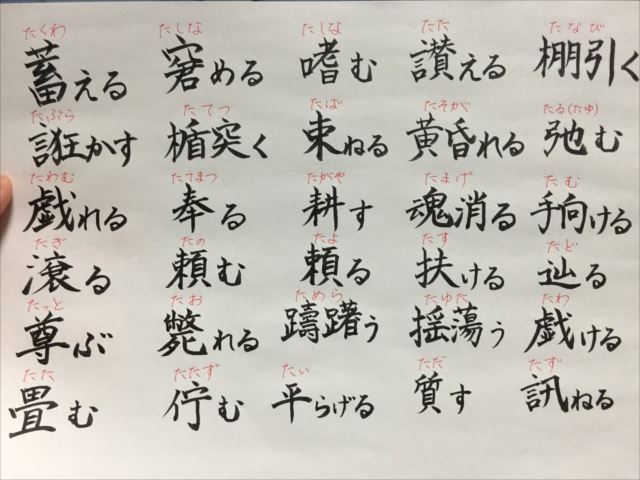 たくわ たしな たしな たた たなび
蓄える 窘める 嗜む 讃える 棚引く
たぶらか たてつ たば たそが たる(たゆ)
誑かす 楯突く 束ねる 黄昏れる 弛む
たわむ たてまつ たがや たまげ たむ
戯れる 奉る 耕す 魂消る 手向ける
たぎ たの たよ たす たど
滾る 頼む 頼る 扶ける 辿る
たっと たお ためら たゆた たわ
尊ぶ 斃れる 躊躇う 揺蕩う 戯ける
たた たたず たい ただ たず
畳む 佇む 平らげる 質す 訊ねる